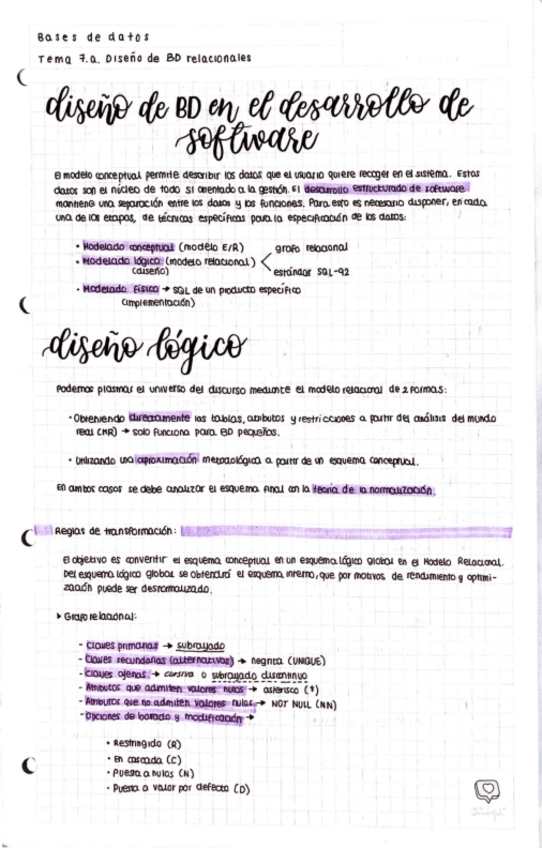 Bases de datos
Tema 7.a. Diseño de BD relacionales
diseño de BD en el desarrollo de
software
El modelo conceptual permite describir los datos que el usuario quiere recoger en el sistema. Estos
datos son el núcleo de todo SI orientado a la gestión. El desarrollo estructurado de software
mantiene una separación entre los datos y las funciones. Para esto es necesario disponer, en cada
una de las etapas, de técnicas específicas para la especificación de los datos:
• Modelado conceptual (modelo E/R)
grafo relacional
• Modelado lógico (modelo relacional) <
(diseño)
estándar SQL-92
• Modelado físico → SQL de un producto específico
(implementación)
diseño lógico
Podemos plasmar el universo del discurso mediante el modelo relacional de 2 formas:
• Obteniendo directamente las tablas, atributos y restricciones a partir del análisis del mundo
real (MR) → solo funciona para BD pequeñas.
• Utilizando una aproximación metodológica a partir de un esquema conceptual.
En ambos casos se debe analizar el esquema final con la teoría de la normalización.
Reglas de transformación:
El objetivo es convertir el esquema conceptual en un esquema lógico global en el Modelo Relacional.
Del esquema lógico global se obtendrá el esquema interno, que por motivos de rendimiento y optimi-
zación puede ser desnormalizado.
▸ Grafo relacional:
- Claves primarias → subrayado
- Claves secundarias (alternativas) → negrita (UNIQUE)
- Claves ajenas → cursiva o subrayado discontinuo
- Atributos que admiten valores nulos → asterisco (*)
- Atributos que no admiten valores nulos → NOT NULL (NN)
- Opciones de borrado y modificación →
• Restringido (R)
• En cascada (C)
• Puesta a nulos (N)
• Puesta a valor por defecto (D)